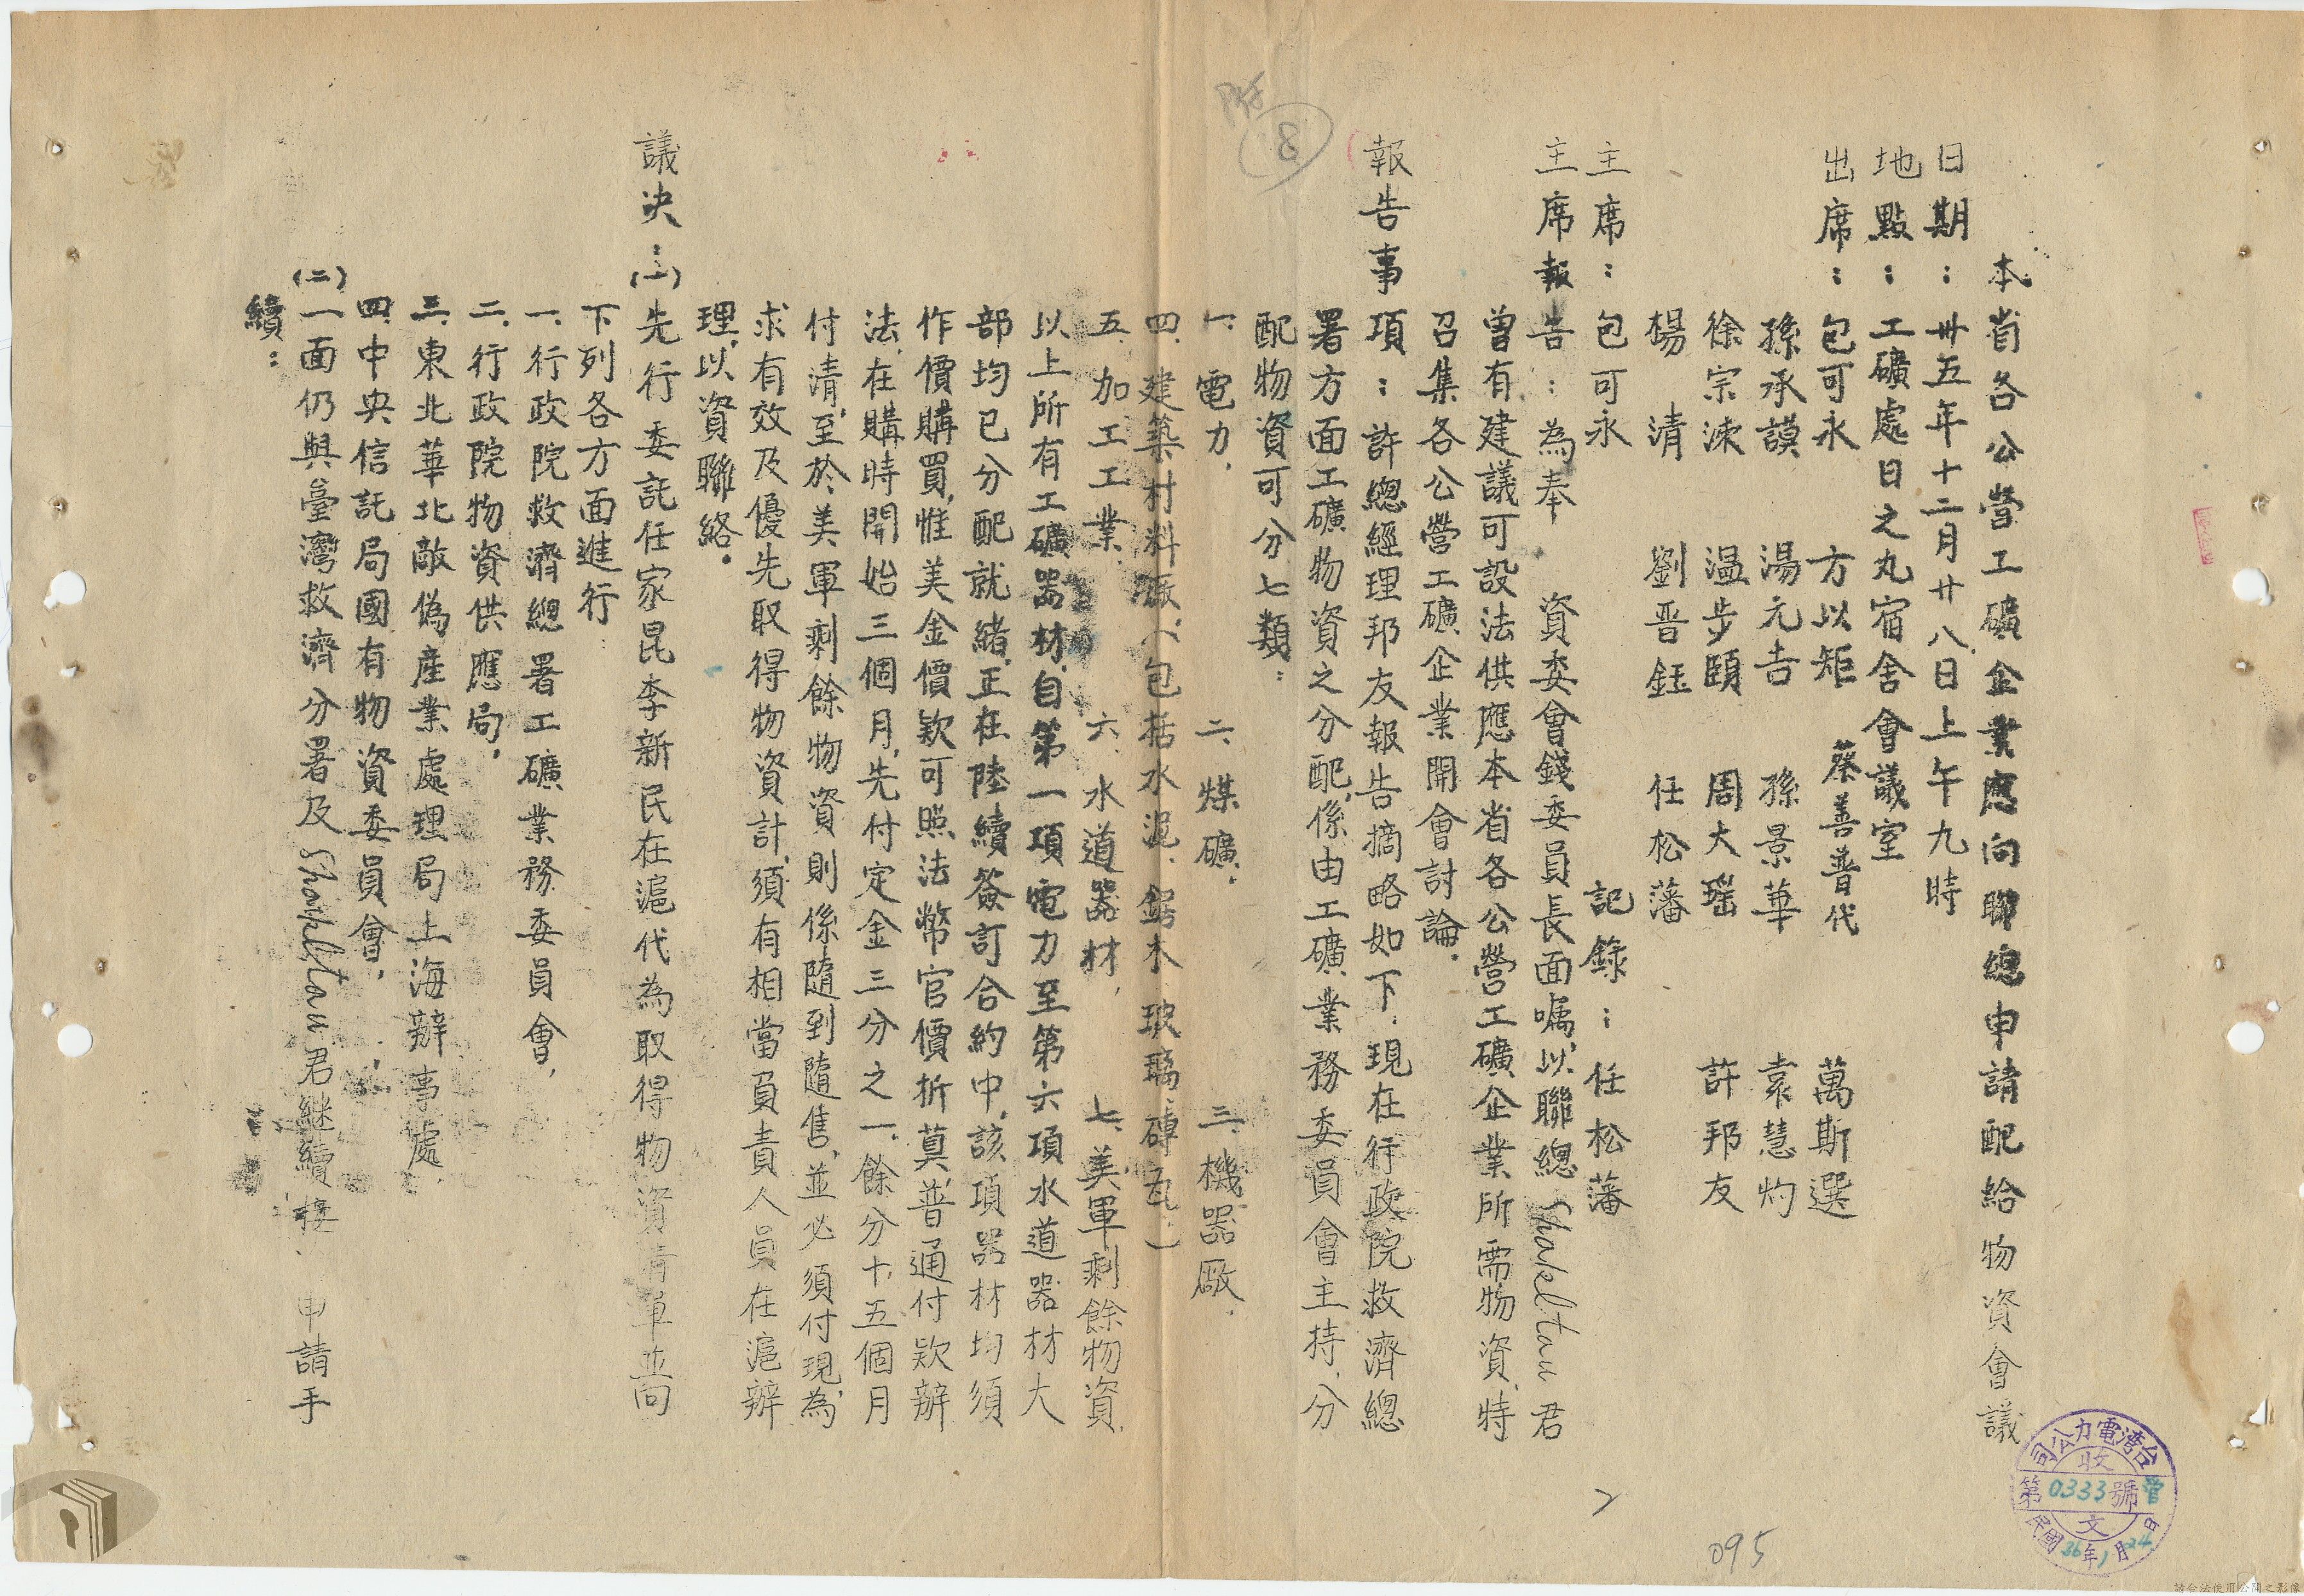 本省各公營工礦企業應向聯總申請配給物資會議
日期：卅五年十二月廿八日上午九時
地點：工礦處日之丸宿舍會議室
出席：包可永 方以矩 蔡善普代 萬斯選
孫承謨 湯元吉 孫景華 袁慧灼
徐宗涑 温步頤 周大瑤 許邦友
楊清 劉晋鈺 任松藩
主席：包可永 記錄：任松藩
主席報告：為奉 資委會錢委員長面嘱、以聯總 Shakeltau 君
曾有建議可設法供應本省各公營工礦企業所需物資、特
召集各公營工礦企業開會討論．
報告事項：許總經理邦友報告摘略如下．現在行政院救濟總
署方面工礦物資之分配、係由工礦業務委員會主持、分
配物資可分七類：
一、電力、 二、煤礦、 三、機器廠、
四、建築材料廠、（包括水泥、鋸木、玻璃、磚瓦、）
五、加工工業、 六、水道器材、 七、美軍剩餘物資、
以上所有工礦器材、自第一項電力至第六項水道器材大
部均已分配就緒、正在陸續簽訂合約中、該項器材均須
作價購買、惟美金價欵可照法幣官價折算、普通付欵辦
法、在購時開始三個月、先付定金三分之一、餘分十五個月
付清、至於美軍剩餘物資則係隨到隨售、並必須付現、為
求有效及優先取得物資計、須有相當負責人員在滬辦
理、以資聯絡．
議決：(一)先行委託任家昆李新民在滬代為取得物資清單並向
下列各方面進行
一、行政院救濟總署工礦業務委員會、
二、行政院物資供應局、
三、東北華北敵偽產業處理局上海辦事處、
四、中央信託局國有物資委員會、
(二)一面仍與臺灣救濟分署及 Shakeltau 君継續接 申請手
續：
附
8
095
台灣電力公司
收
第0333號
文
民國36年1月24日
請合法使用公開之影像